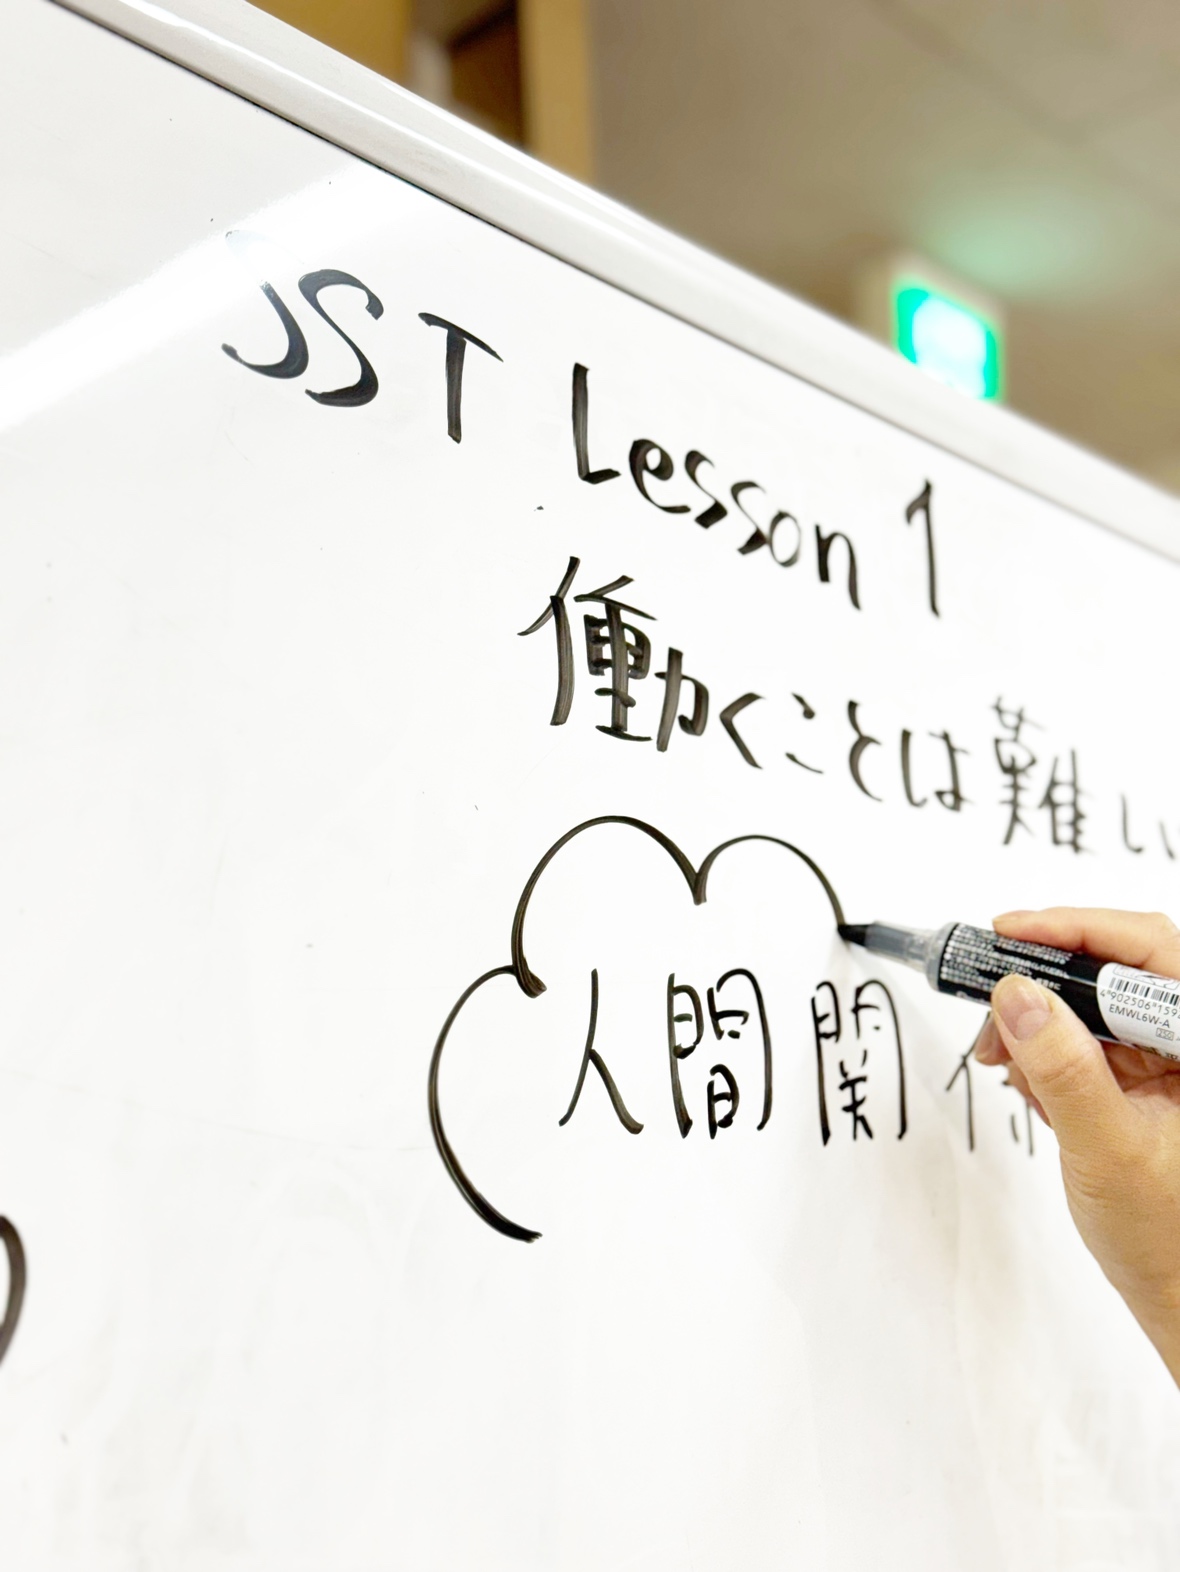 JST Lesson 1
働くことは難しい
人間関係
4902506159
EMWL6W-A